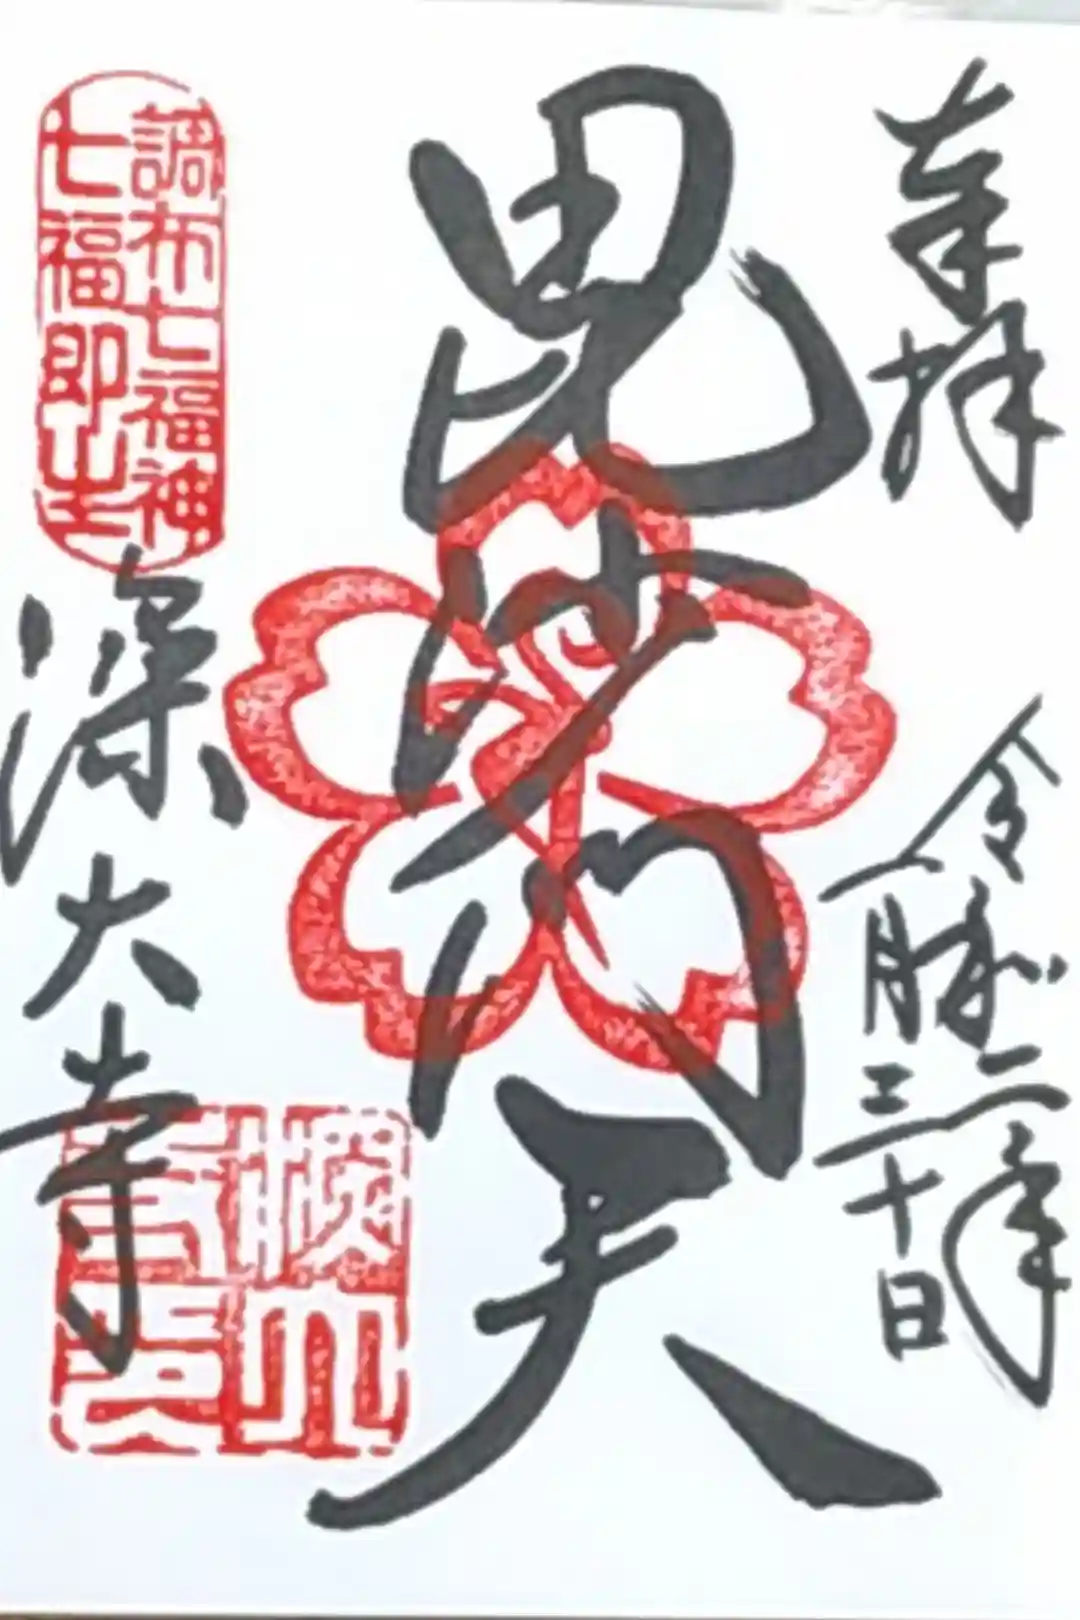 奉拝
令和二年
一月三十日
毘沙門天
調布七福神
七福即生
深大寺
深大
寺印